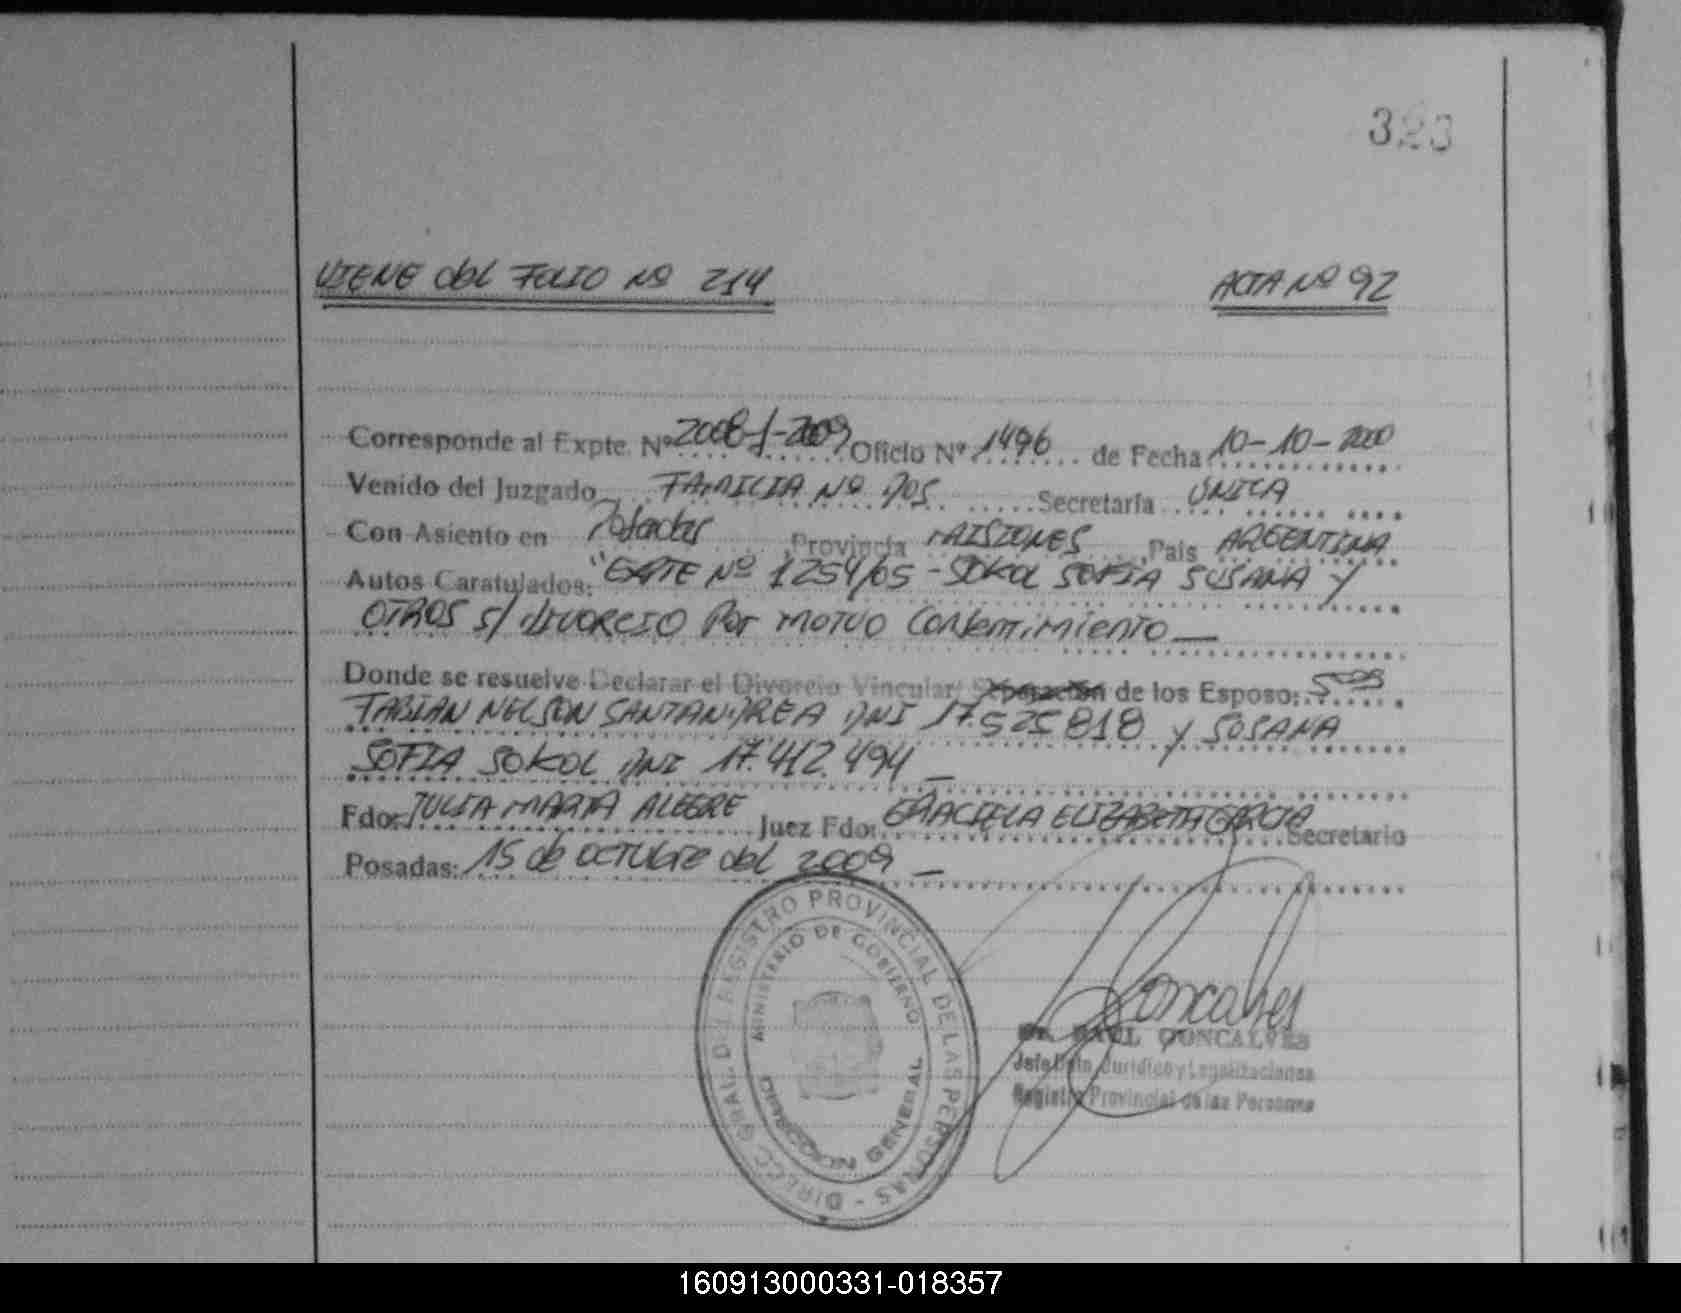 323
VIENE del FOLIO Nº 214 ACTA Nº 92
Corresponde al Expte. Nº 2008-J-2009 Oficio Nº 1496 de Fecha 10-10-2000
Venido del Juzgado FAMILIA Nº DOS Secretaría UNICA
Con Asiento en Posadas, Provincia MISIONES, País ARGENTINA
Autos Caratulados: "EXPTE Nº 1254/05 - SOKOL SOFIA SUSANA Y
OTROS s/ DIVORCIO Por MOTUO Consentimiento
Donde se resuelve Declarar el Divorcio Vincular, Separación de los Esposo:
FABIAN NELSON SANTANDREA DNI 17.525818 y SUSANA
SOFIA SOKOL DNI 17.412.494
Fdo: JULIA MARTA ALEGRE Juez Fdo: GRACIELA ELIZABETH GARCIA Secretario
Posadas: 15 de OCTUBRE del 2009
DIRECC. GRAL. DEL REGISTRO PROVINCIAL DE LAS PERSONAS -
MINISTERIO DE GOBIERNO
DIRECCION GENERAL
Goncalves
Dr. RAUL GONCALVES
Jefe Dpto. Jurídico y Legalizaciones
Registro Provincial de las Personas
160913000331-018357